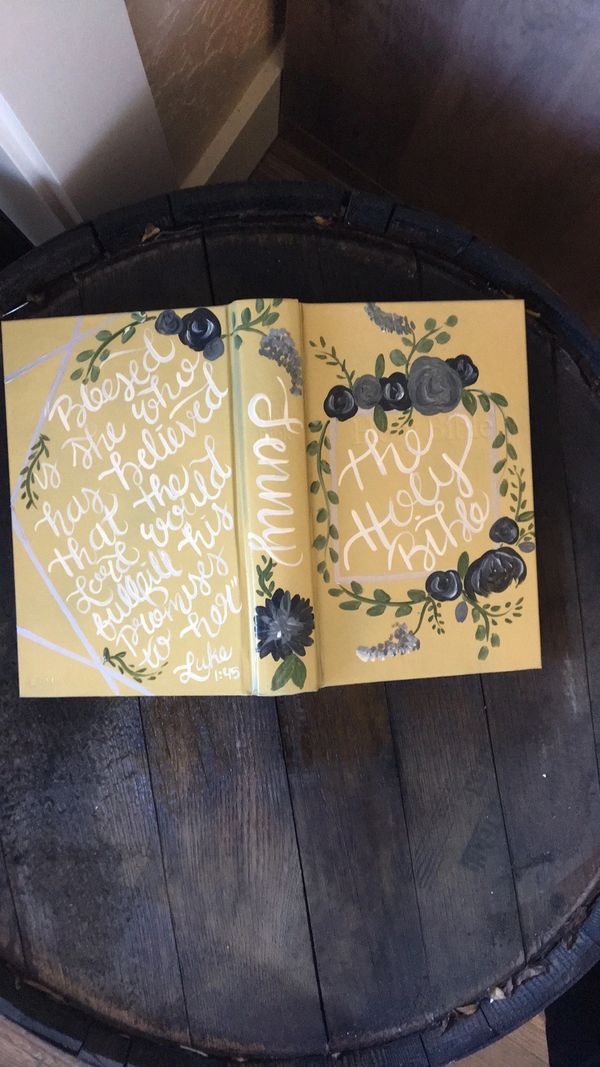 "Blessed
is she who
has believed
that the
Lord would
fulfill his
promises
to her"
Luke
1:45
Jenny
the
Holy
Bible